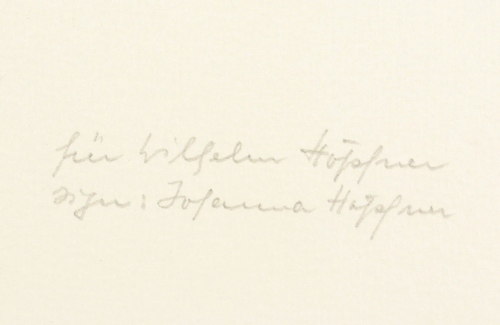 für Wilhelm Höpfner
sign: Johanna Höpfner